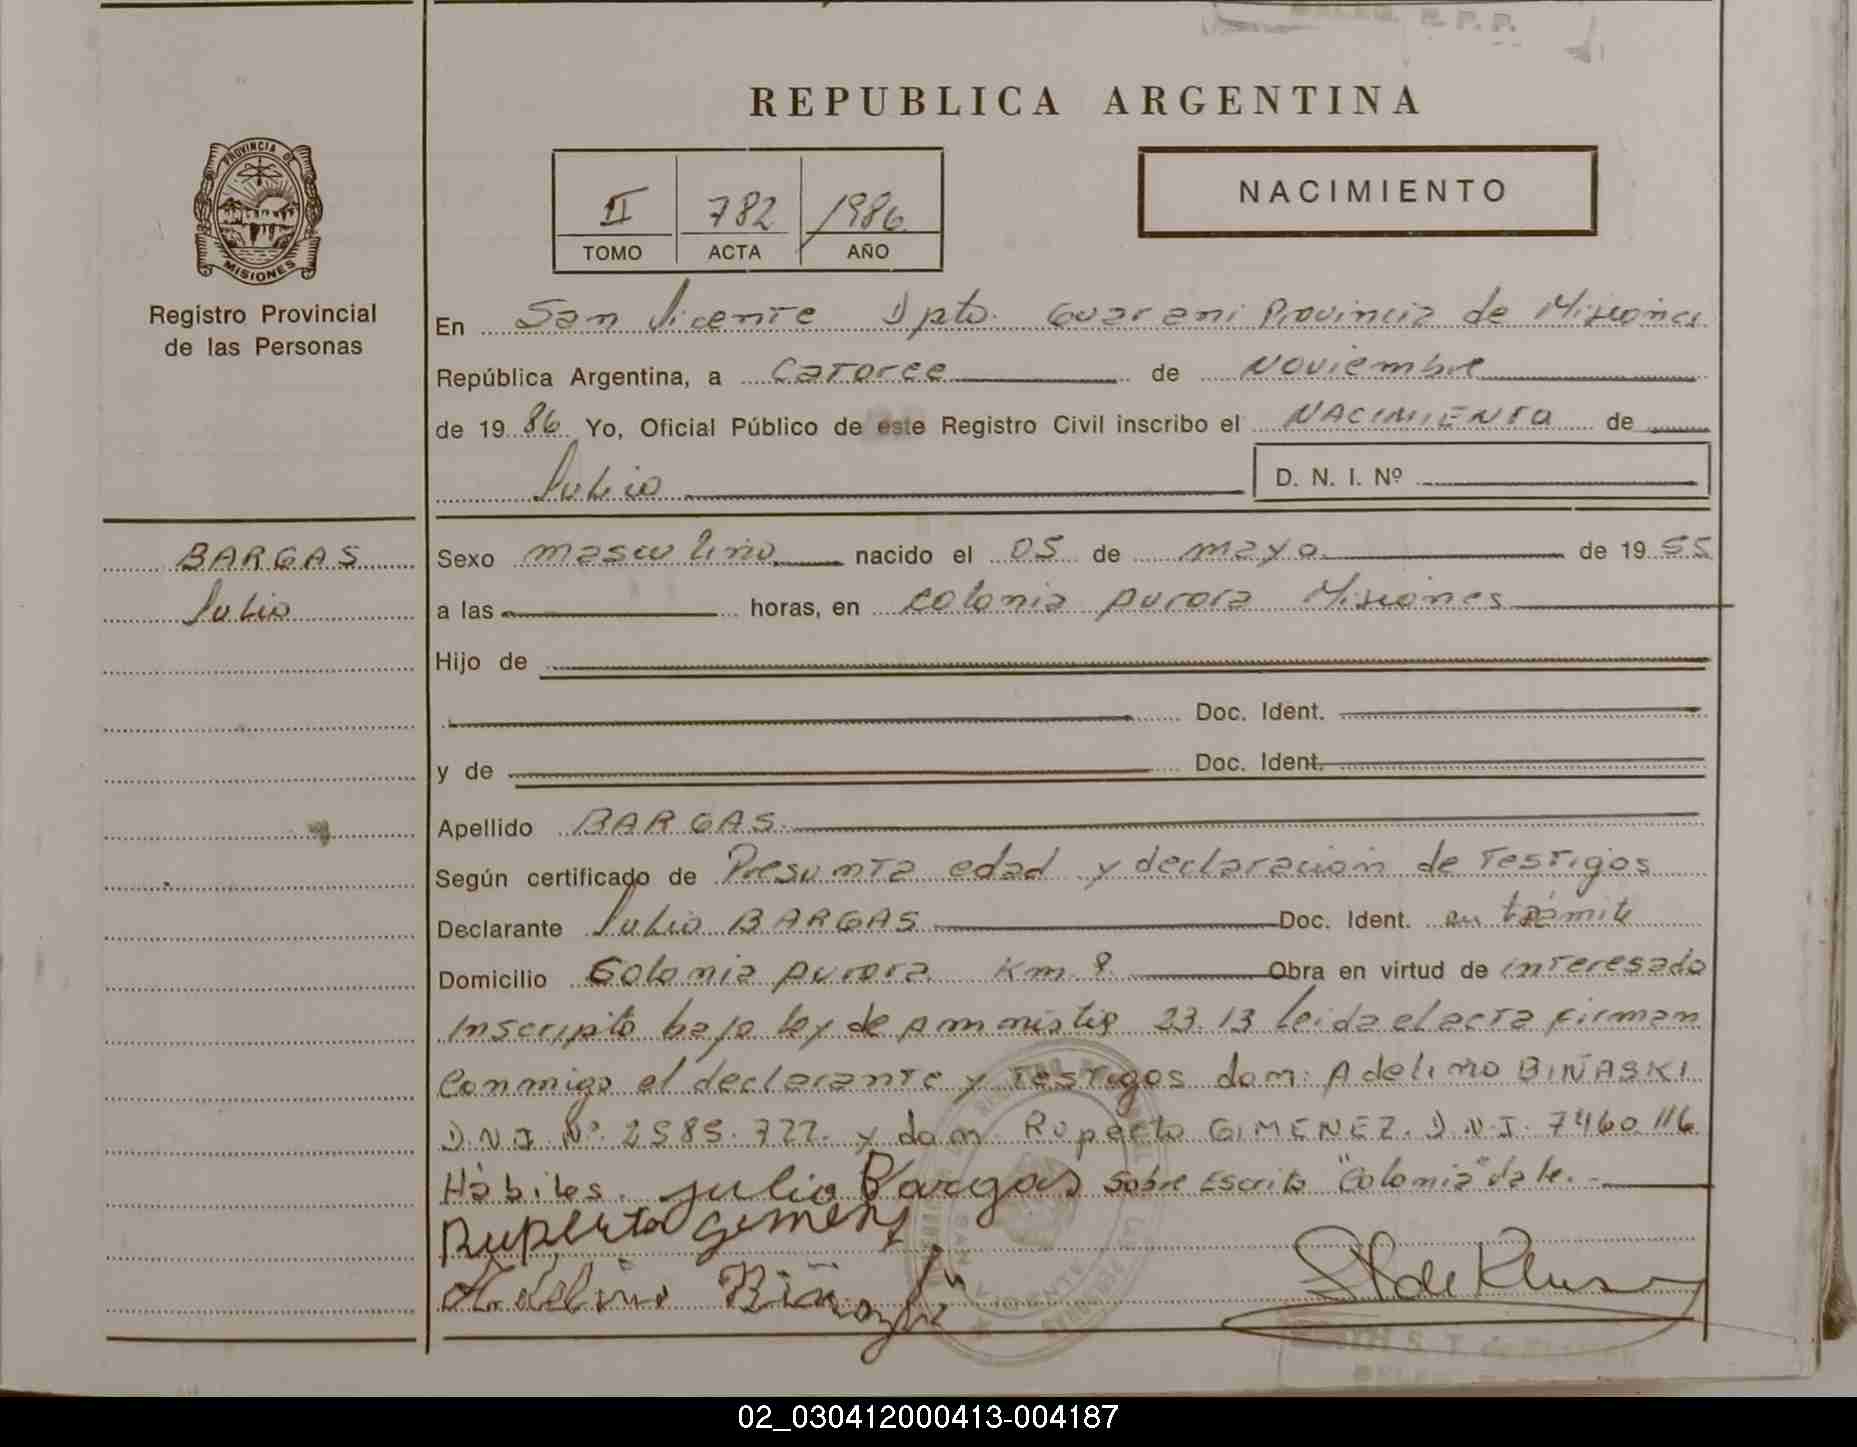 REPUBLICA ARGENTINA
PROVINCIA DE
MISIONES
Registro Provincial
de las Personas
II 782 1986
TOMO ACTA AÑO
NACIMIENTO
En San Vicente Dpto. Guarani Provincia de Misiones
República Argentina, a Catorce de Noviembre
de 19 86 Yo, Oficial Público de este Registro Civil inscribo el NACIMIENTO de
Julio D. N. I. Nº
BARGAS
Julio
Sexo masculino nacido el 05 de mayo de 19 55
a las horas, en Colonia Aurora Misiones
Hijo de
Doc. Ident.
y de Doc. Ident.
Apellido BARGAS
Según certificado de Presunta edad y declaración de Testigos
Declarante Julio BARGAS Doc. Ident. en trámite
Domicilio Colonia Aurora Km. 8 Obra en virtud de interesado
Inscripto bajo ley de Amnistia 23.13 leida el acta firman
Conmigo el declarante y Testigos dom: Adelino BIÑASKI
D.N.I Nº. 2585.722. y dom. Ruperto GIMENEZ. D.N.I. 7460116
Hábiles. Julio Bargas Sobre Escrito "Colonia" Vale.-
Ruperto Gimenez
Adelino
02_030412000413-004187